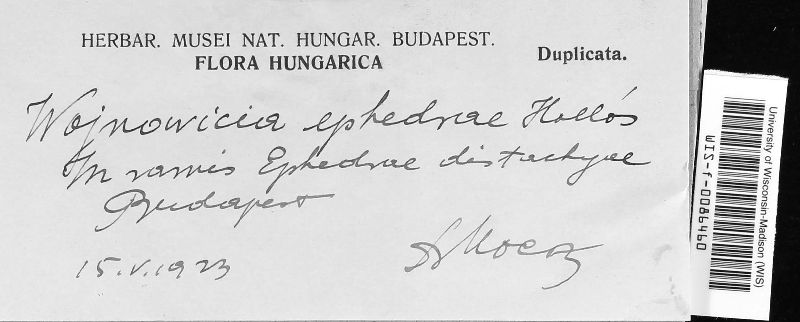 HERBAR. MUSEI NAT. HUNGAR. BUDAPEST.
FLORA HUNGARICA
Duplicata.
Wojnowicia ephedrae Hollós
In ramis Ephedrae distachyae
Budapest
15.V.1923
University of Wisconsin-Madison (WIS)
WIS-f-0086460